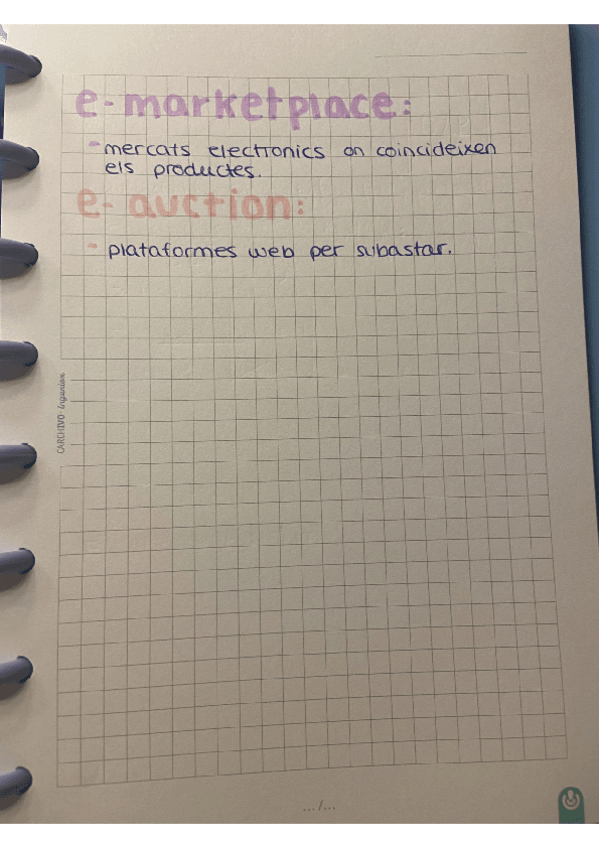 e-marketplace:
- mercats electronics on coincideixen
els productes.
e-auction:
- plataformes web per subastar.
CARCHIVO Ingeniox
.../...